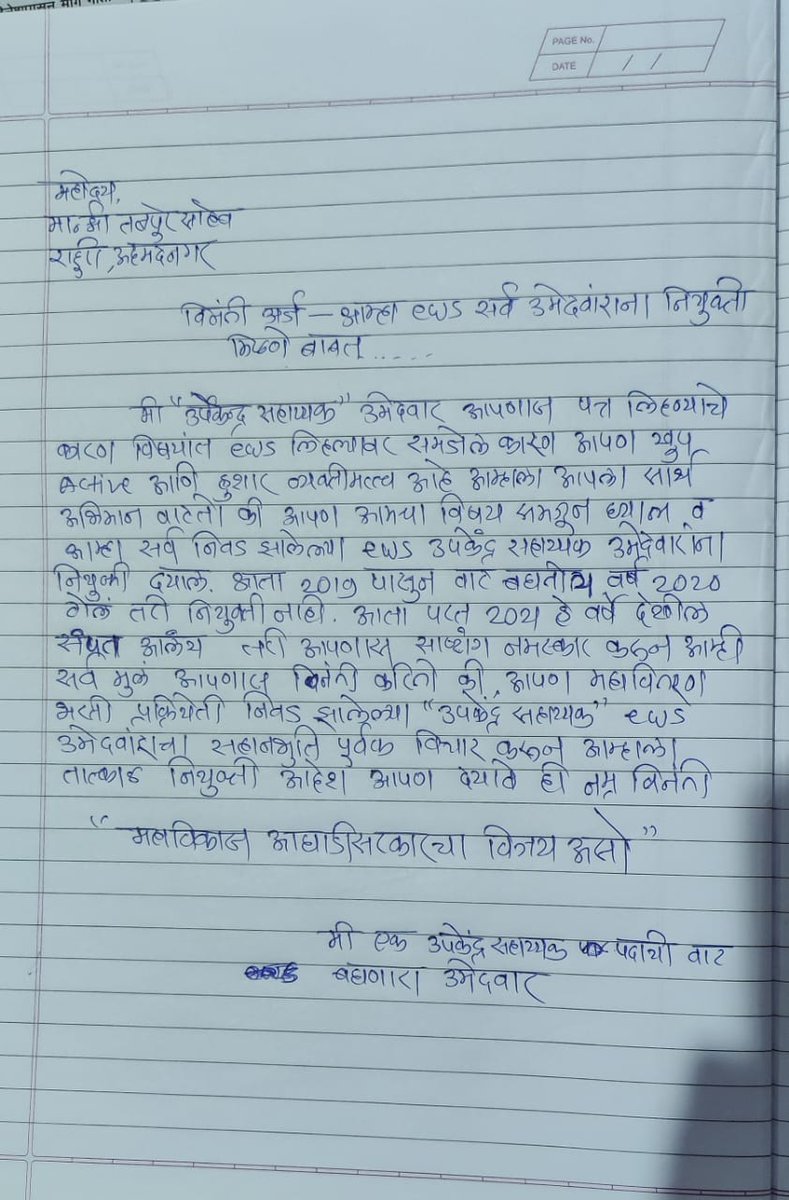 PAGE No.
DATE / /
महोदय,
मा.श्री तनपुरे साहेब
राहुरी, अहमदनगर
विनंती अर्ज – आम्हा EWS सर्व उमेदवांराना नियुक्ती
मिळणे बाबत.....
मी "उपकेंद्र सहाय्यक" उमेदवार आपणास पत्र लिहण्याचे
कारण विषयांत EWS लिहल्यावर समजेल कारण आपण खुप
Active आणि हुशार व्यक्तीमत्त्व आहे आम्हाला आपला सार्थ
अभिमान वाटतो की आपण आमचा विषय समजून घ्याल व
आम्हा सर्व निवड झालेल्या EWS उपकेंद्र सहाय्यक उमेदवारांना
नियुक्ती दयाल. आता 2019 पासुन वाट बघतोय वर्ष 2020
गेलं तरी नियुक्ती नाही. आता परत 2021 हे वर्ष देखील
संपत आलंय तरी आपणास साष्टांग नमस्कार करून आम्ही
सर्व मुलं आपणास विनंती करितो की, आपण महावितरण
भरती प्रक्रियेती निवड झालेल्या "उपकेंद्र सहाय्यक" EWS
उमेदवांराचा सहानभुति पुर्वक विचार करून आम्हाला
तात्काळ नियुक्ती आदेश आपण दयावे ही नम्र विनंती
"महाविकास आघाडीसरकारचा विजय असो"
मी एक उपकेंद्र सहाय्यक पदाची वाट
बघणारा उमेदवार